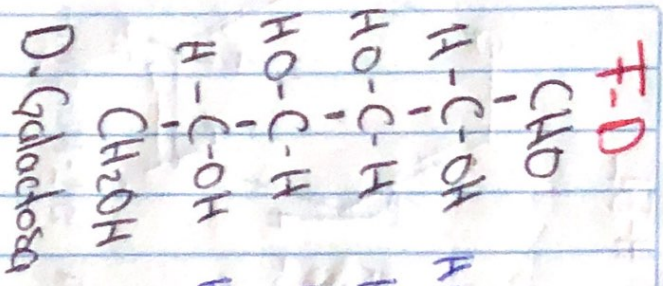 CHO
H-C-OH
HO-C-H
HO-C-H
H-C-OH
CH₂OH
D-Galactosa